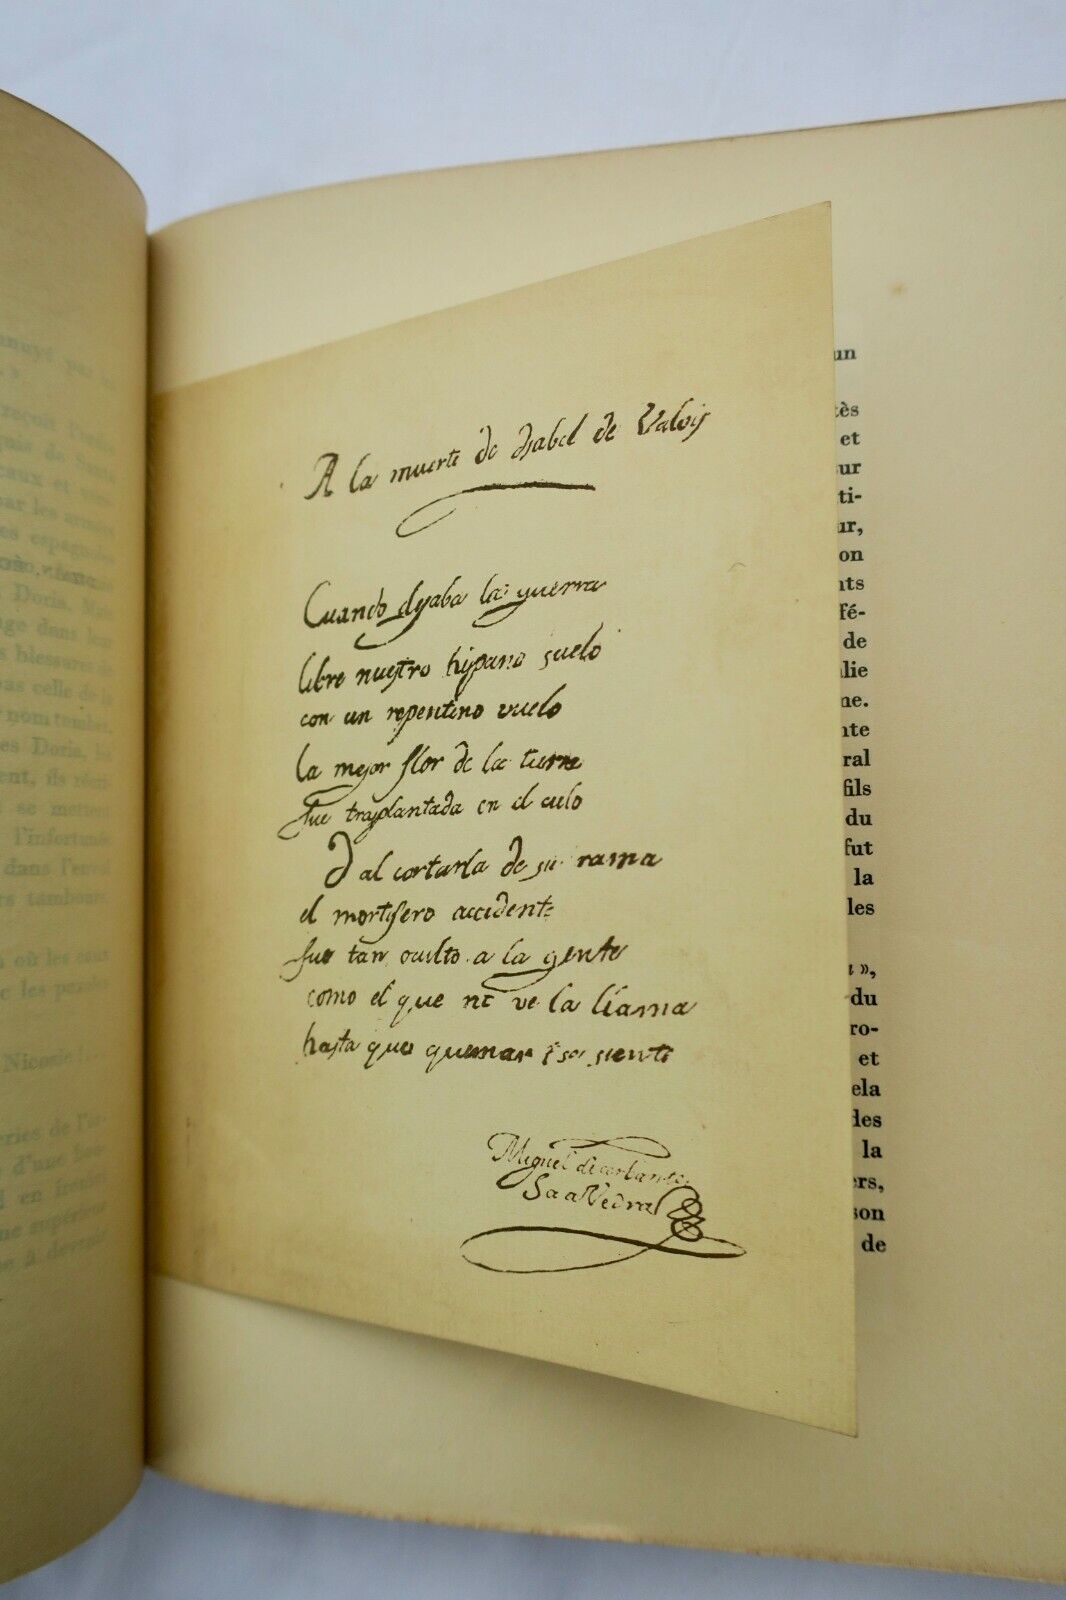 nnuyé par un
. »
reçoit l'infor
quis de Santa
caux et une
par les armes
es espagnoles
Doria. Mais
age dans leur
s blessures de
pas celle de la
r nom tombet.
es Doria, les
ent, ils
se mettent
l'infortuné
dans l'envoi
rs tambours,
où les eaux
e les parois
Nicosie
eries de l'a-
d'une
en
ne supérieur
e à devenir
A la muerte de Isabel de Valois
Cuando dejaba la guerra
libre nuestro hispano suelo
con un repentino vuelo
la mejor flor de la tierra
fue trasplantada en el cielo
Y al cortarla de su rama
el mortifero accidente
fue tan oculto a la gente
como el que no ve la llama
hasta que quemar se siente
Miguel de cerbantes
Saavedra
un
tès
et
sur
ti-
ur,
on
nts
fé-
de
alie
ne.
nte
ral
fils
du
fut
la
les
»,
du
ro-
et
ela
des
la
ers,
son
de